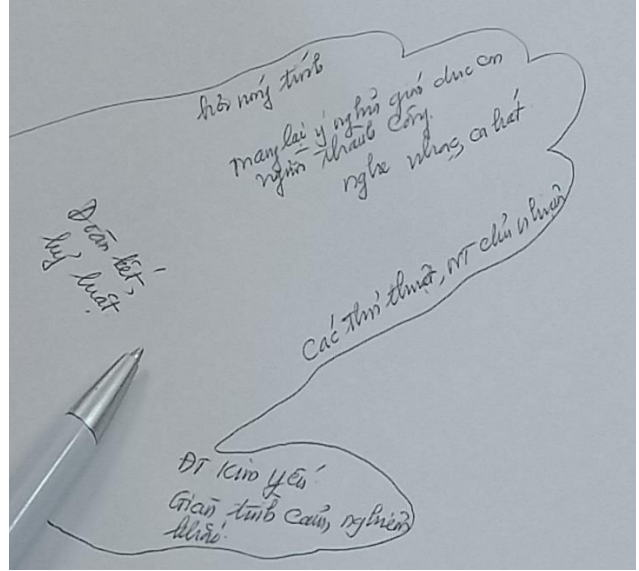 hơi nóng tính
mang lại ý nghĩa giáo dục con
người thành công.
nghe nhạc, ca hát
Đoàn kết,
kỷ luật.
Các thủ thuật, NT chủ nhiệm
ĐT kim yếu
Giàu tình cảm, nghiêm
khắc.